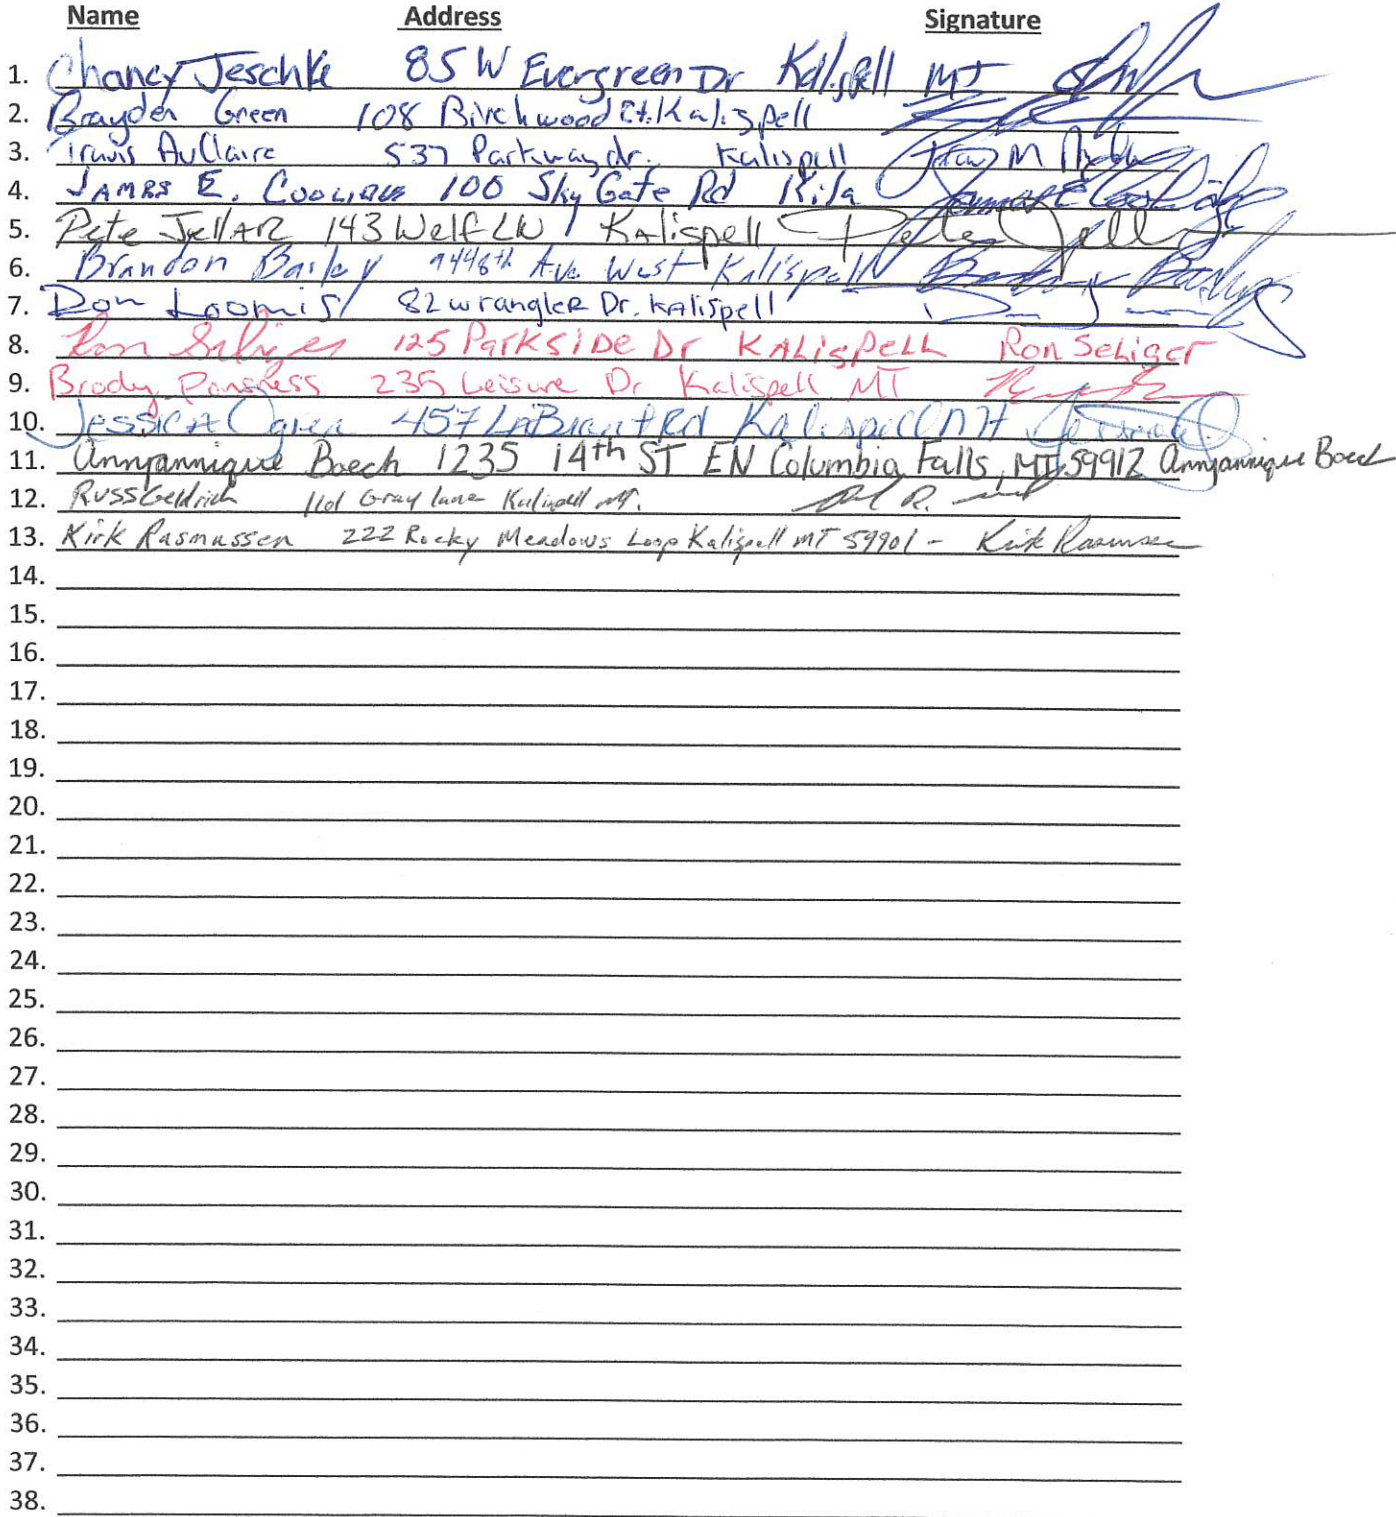 Name Address Signature
1. Chancy Jeschke 85 W Evergreen Dr Kalispell MT
2. Brayden Green 108 Birchwood Ct. Kalispell
3. Travis AuClaire 537 Parkway dr. Kalispell Travis M
4. JAMES E. 100 Sky Gate Rd Kila James E
5. Pete JellAR 143 Wolf LN Kalispell Pete Jell
6. Brandon Bailey 944 8th Ave West Kalispell
7. Don Loomis 82 wrangler Dr. KAlispell
8. Ron 125 PARKSIDE Dr KALispeLL Ron Seliger
9. Brody 235 Leisure Dr Kalispell MT
10. Jessica 457 LaBrant Rd Kalispell MT
11. Annjannique Boech 1235 14th ST EN Columbia Falls, MT 59912 Annjannique Boech
12. Russ Geldrich 1101 Gray lane Kalispell MT.
13. Kirk Rasmussen 222 Rocky Meadows Loop Kalispell MT 59901 - Kirk Rasmussen
14.
15.
16.
17.
18.
19.
20.
21.
22.
23.
24.
25.
26.
27.
28.
29.
30.
31.
32.
33.
34.
35.
36.
37.
38.